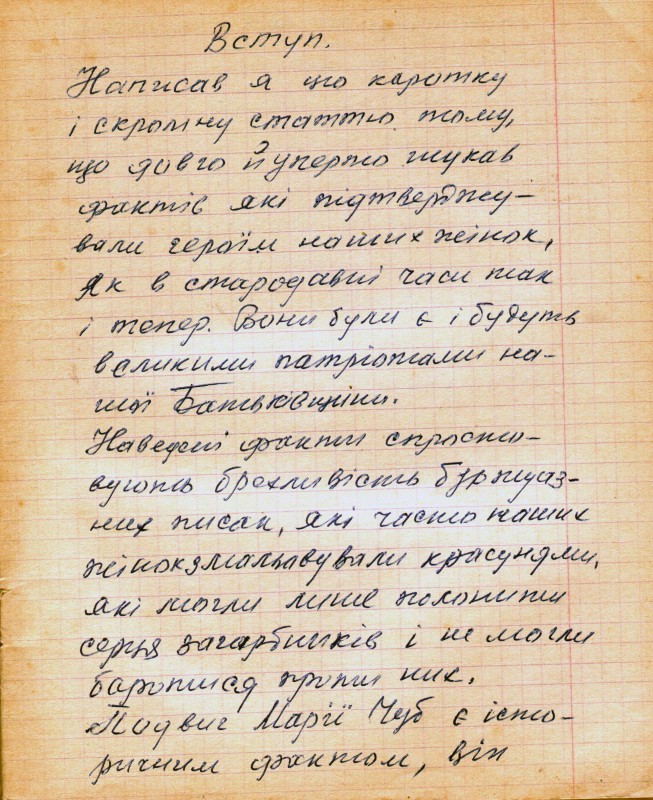 Вступ.
Написав я цю коротку
і скромну статтю тому,
що довго й уперто шукав
фактів які підтверджу-
вали героїм наших жінок,
як в стародавні часи так
і тепер. Вони були є і будуть
великими патріотами на-
шої Батьківщини.
Наведені факти спросто-
вують брехливість буржуаз-
них писак, які часто наших
жінок змальовували красунями,
які могли лише полонити
серця загарбників і не могли
боротися проти них.
Подвиг Марії Чуб є істо-
ричним фактом, він